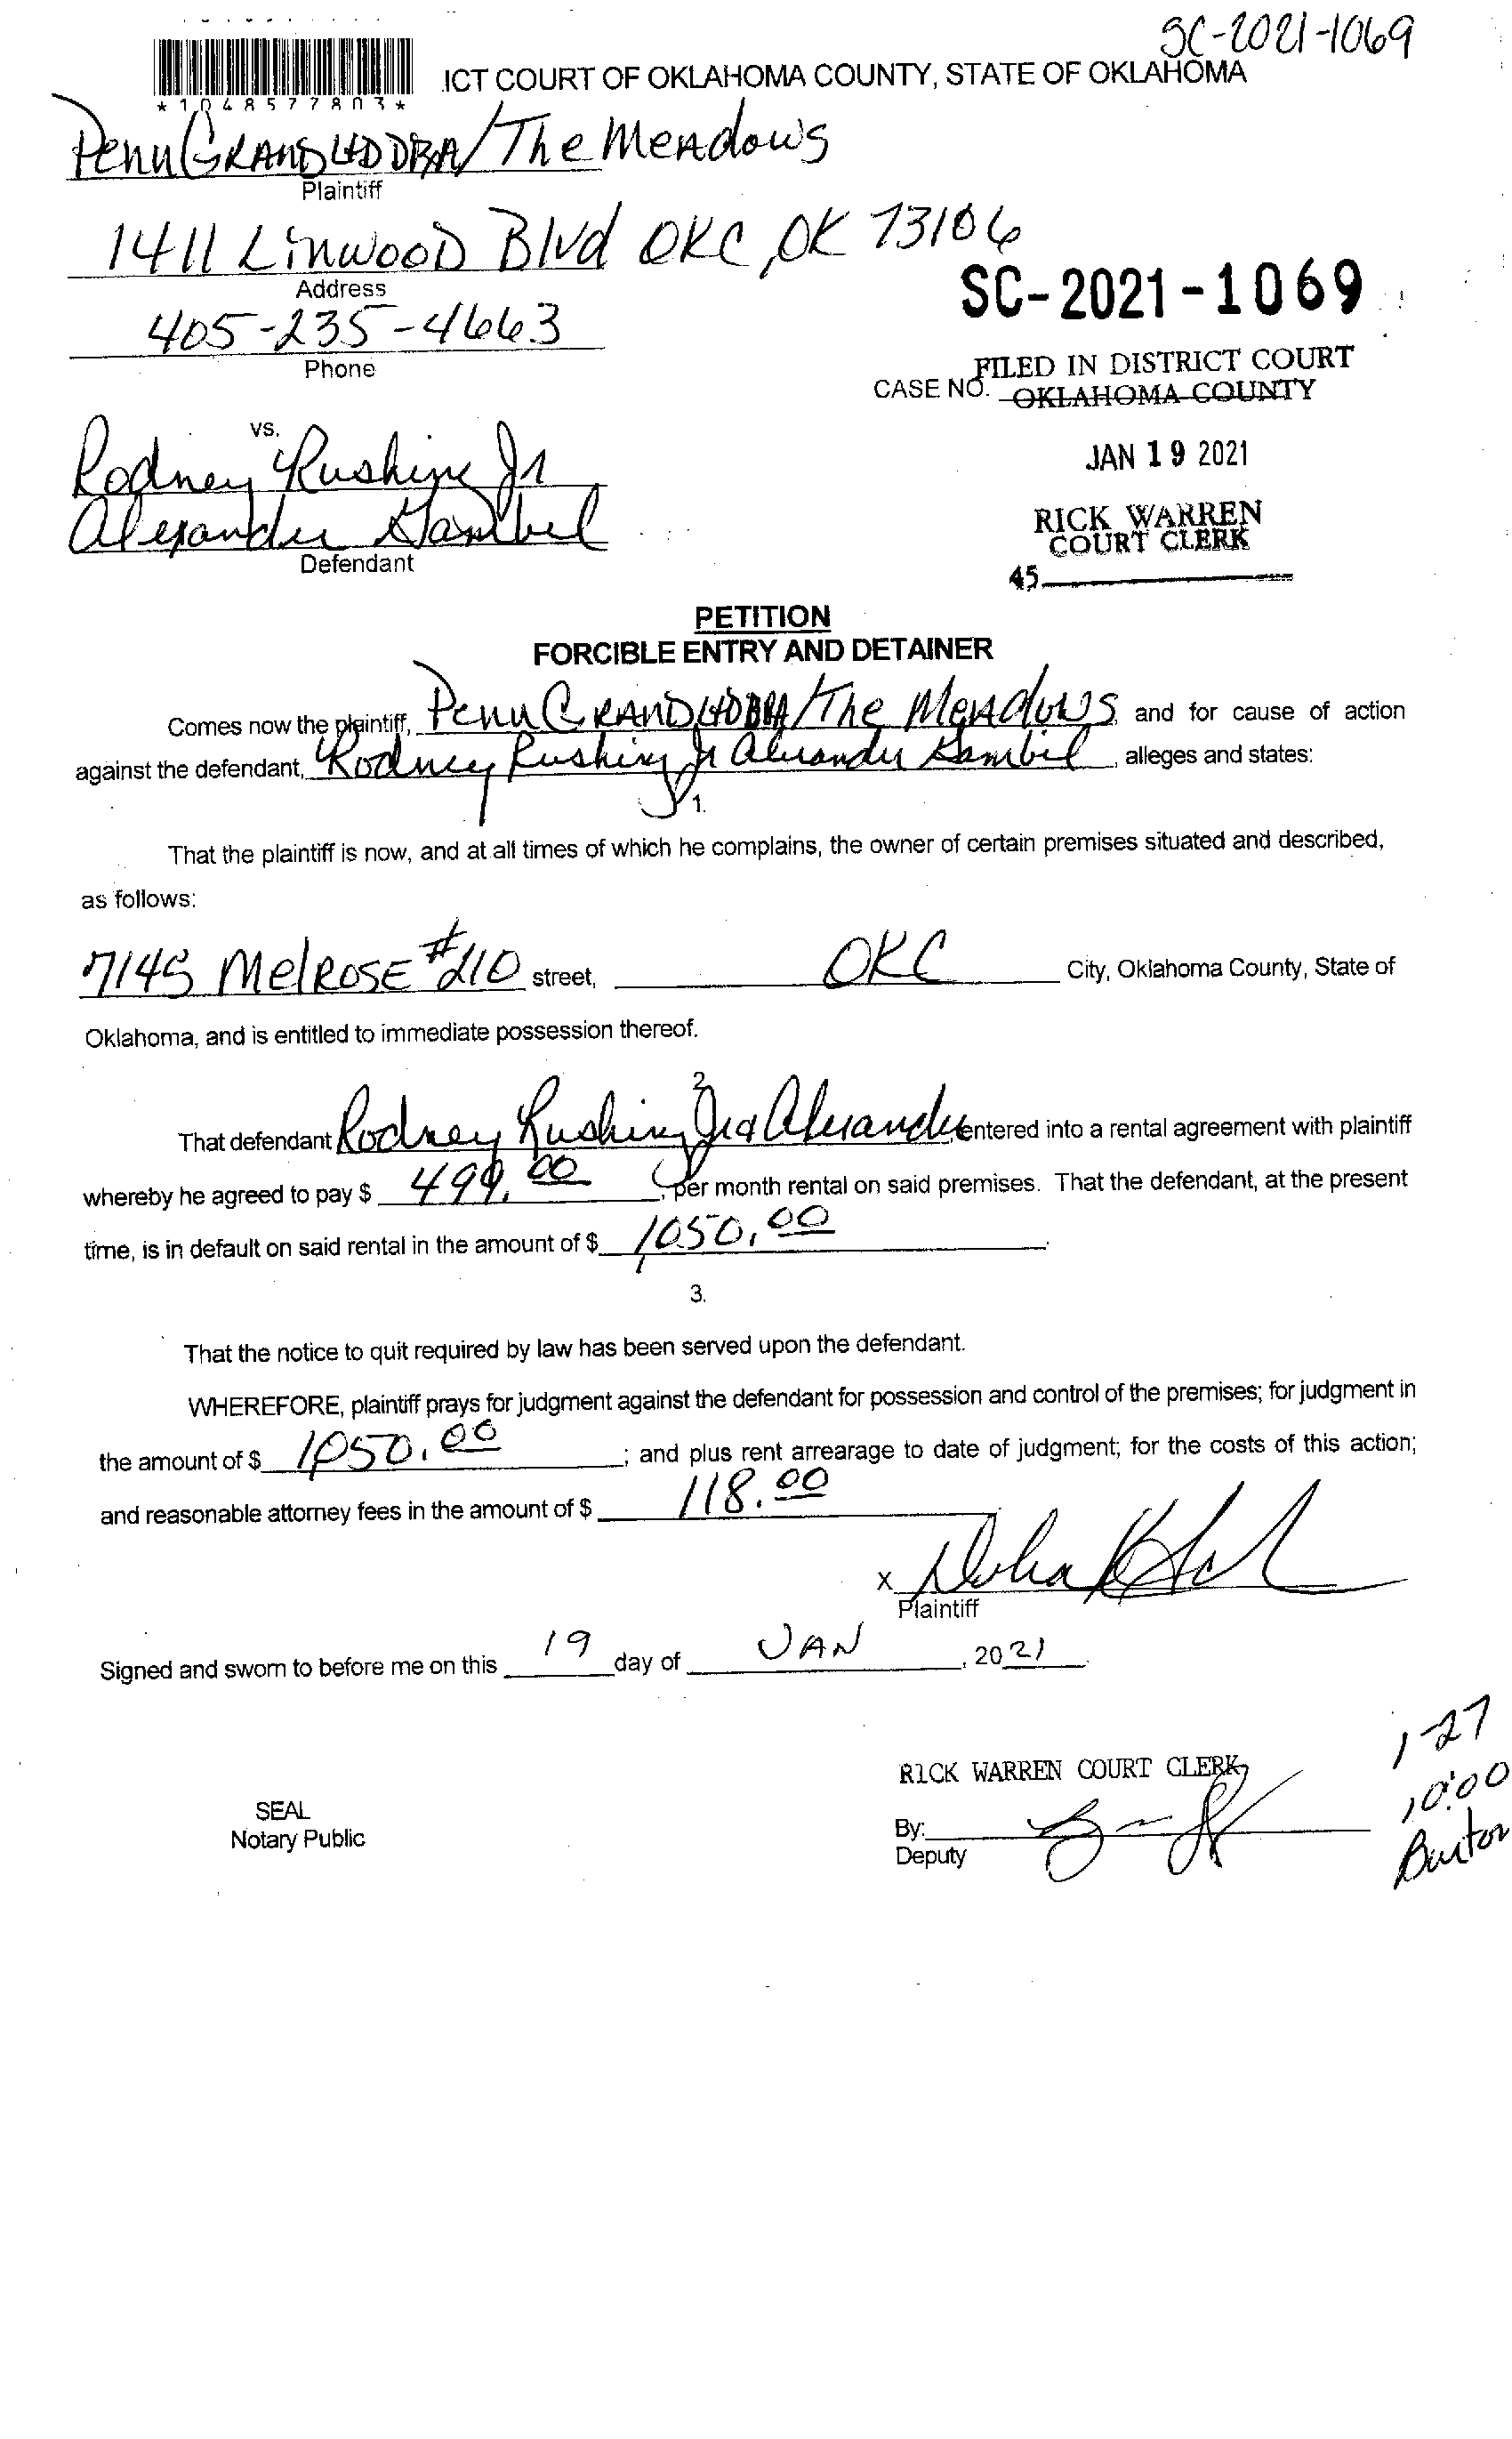 SC-2021-1069
ICT COURT OF OKLAHOMA COUNTY, STATE OF OKLAHOMA
*1048577803*
Penn Grand LTD DBA/The Meadows
Plaintiff
1411 Linwood Blvd OKC, OK 73106
Address
SC-2021-1069
405-235-4663
Phone
FILED IN DISTRICT COURT
CASE NO. OKLAHOMA COUNTY
vs.
JAN 19 2021
Rodney Rushing Jr
RICK WARREN
COURT CLERK
Alexander
Defendant
45
PETITION
FORCIBLE ENTRY AND DETAINER
Comes now the plaintiff, Penn Grand LTD DBA/The Meadows and for cause of action
against the defendant, Rodney Rushing Jr Alexander , alleges and states:
1.
That the plaintiff is now, and at all times of which he complains, the owner of certain premises situated and described,
as follows:
7145 Melrose #210 street, OKC City, Oklahoma County, State of
Oklahoma, and is entitled to immediate possession thereof.
2.
That defendant Rodney Rushing Jr & Alexander entered into a rental agreement with plaintiff
whereby he agreed to pay $ 499.00, per month rental on said premises. That the defendant, at the present
time, is in default on said rental in the amount of $ 1,050.00.
3.
That the notice to quit required by law has been served upon the defendant.
WHEREFORE, plaintiff prays for judgment against the defendant for possession and control of the premises; for judgment in
the amount of $ 1050.00; and plus rent arrearage to date of judgment; for the costs of this action;
and reasonable attorney fees in the amount of $ 118.00
X
Plaintiff
Signed and sworn to before me on this 19 day of JAN, 2021.
1-27
RICK WARREN COURT CLERK
10:00
SEAL
Notary Public
By:
Deputy
Burton